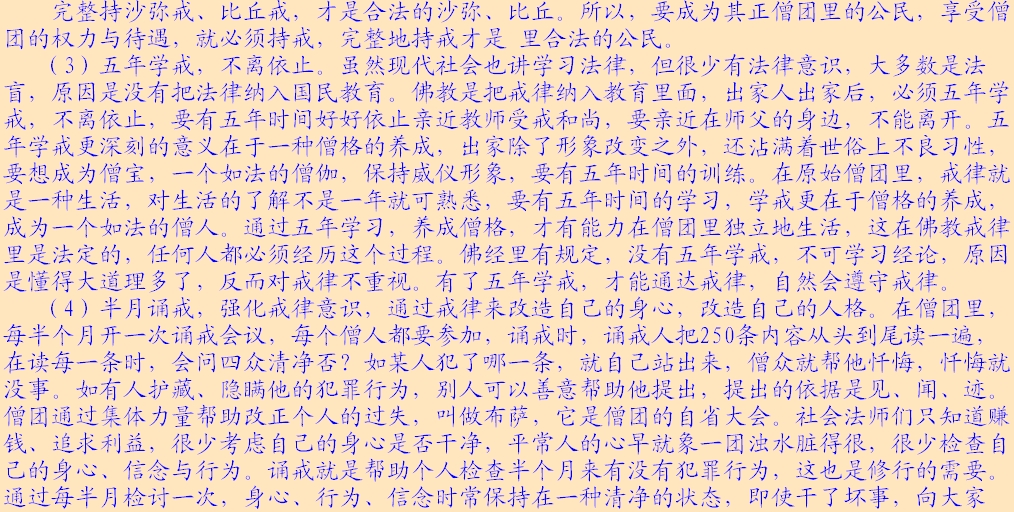 完整持沙弥戒、比丘戒，才是合法的沙弥、比丘。所以，要成为其正僧团里的公民，享受僧
团的权力与待遇，就必须持戒，完整地持戒才是 里合法的公民。
（3）五年学戒，不离依止。虽然现代社会也讲学习法律，但很少有法律意识，大多数是法
盲，原因是没有把法律纳入国民教育。佛教是把戒律纳入教育里面，出家人出家后，必须五年学
戒，不离依止，要有五年时间好好依止亲近教师受戒和尚，要亲近在师父的身边，不能离开。五
年学戒更深刻的意义在于一种僧格的养成，出家除了形象改变之外，还沾满着世俗上不良习性，
要想成为僧宝，一个如法的僧伽，保持威仪形象，要有五年时间的训练。在原始僧团里，戒律就
是一种生活，对生活的了解不是一年就可熟悉，要有五年时间的学习，学戒更在于僧格的养成，
成为一个如法的僧人。通过五年学习，养成僧格，才有能力在僧团里独立地生活，这在佛教戒律
里是法定的，任何人都必须经历这个过程。佛经里有规定，没有五年学戒，不可学习经论，原因
是懂得大道理多了，反而对戒律不重视。有了五年学戒，才能通达戒律，自然会遵守戒律。
（4）半月诵戒，强化戒律意识，通过戒律来改造自己的身心，改造自己的人格。在僧团里，
每半个月开一次诵戒会议，每个僧人都要参加，诵戒时，诵戒人把250条内容从头到尾读一遍，
在读每一条时，会问四众清净否？如某人犯了哪一条，就自己站出来，僧众就帮他忏悔，忏悔就
没事。如有人护藏、隐瞒他的犯罪行为，别人可以善意帮助他提出，提出的依据是见、闻、迹。
僧团通过集体力量帮助改正个人的过失，叫做布萨，它是僧团的自省大会。社会法师们只知道赚
钱、追求利益，很少考虑自己的身心是否干净，平常人的心早就象一团浊水脏得很，很少检查自
己的身心、信念与行为。诵戒就是帮助个人检查半个月来有没有犯罪行为，这也是修行的需要。
通过每半月检讨一次，身心、行为、信念时常保持在一种清净的状态，即使干了坏事，向大家